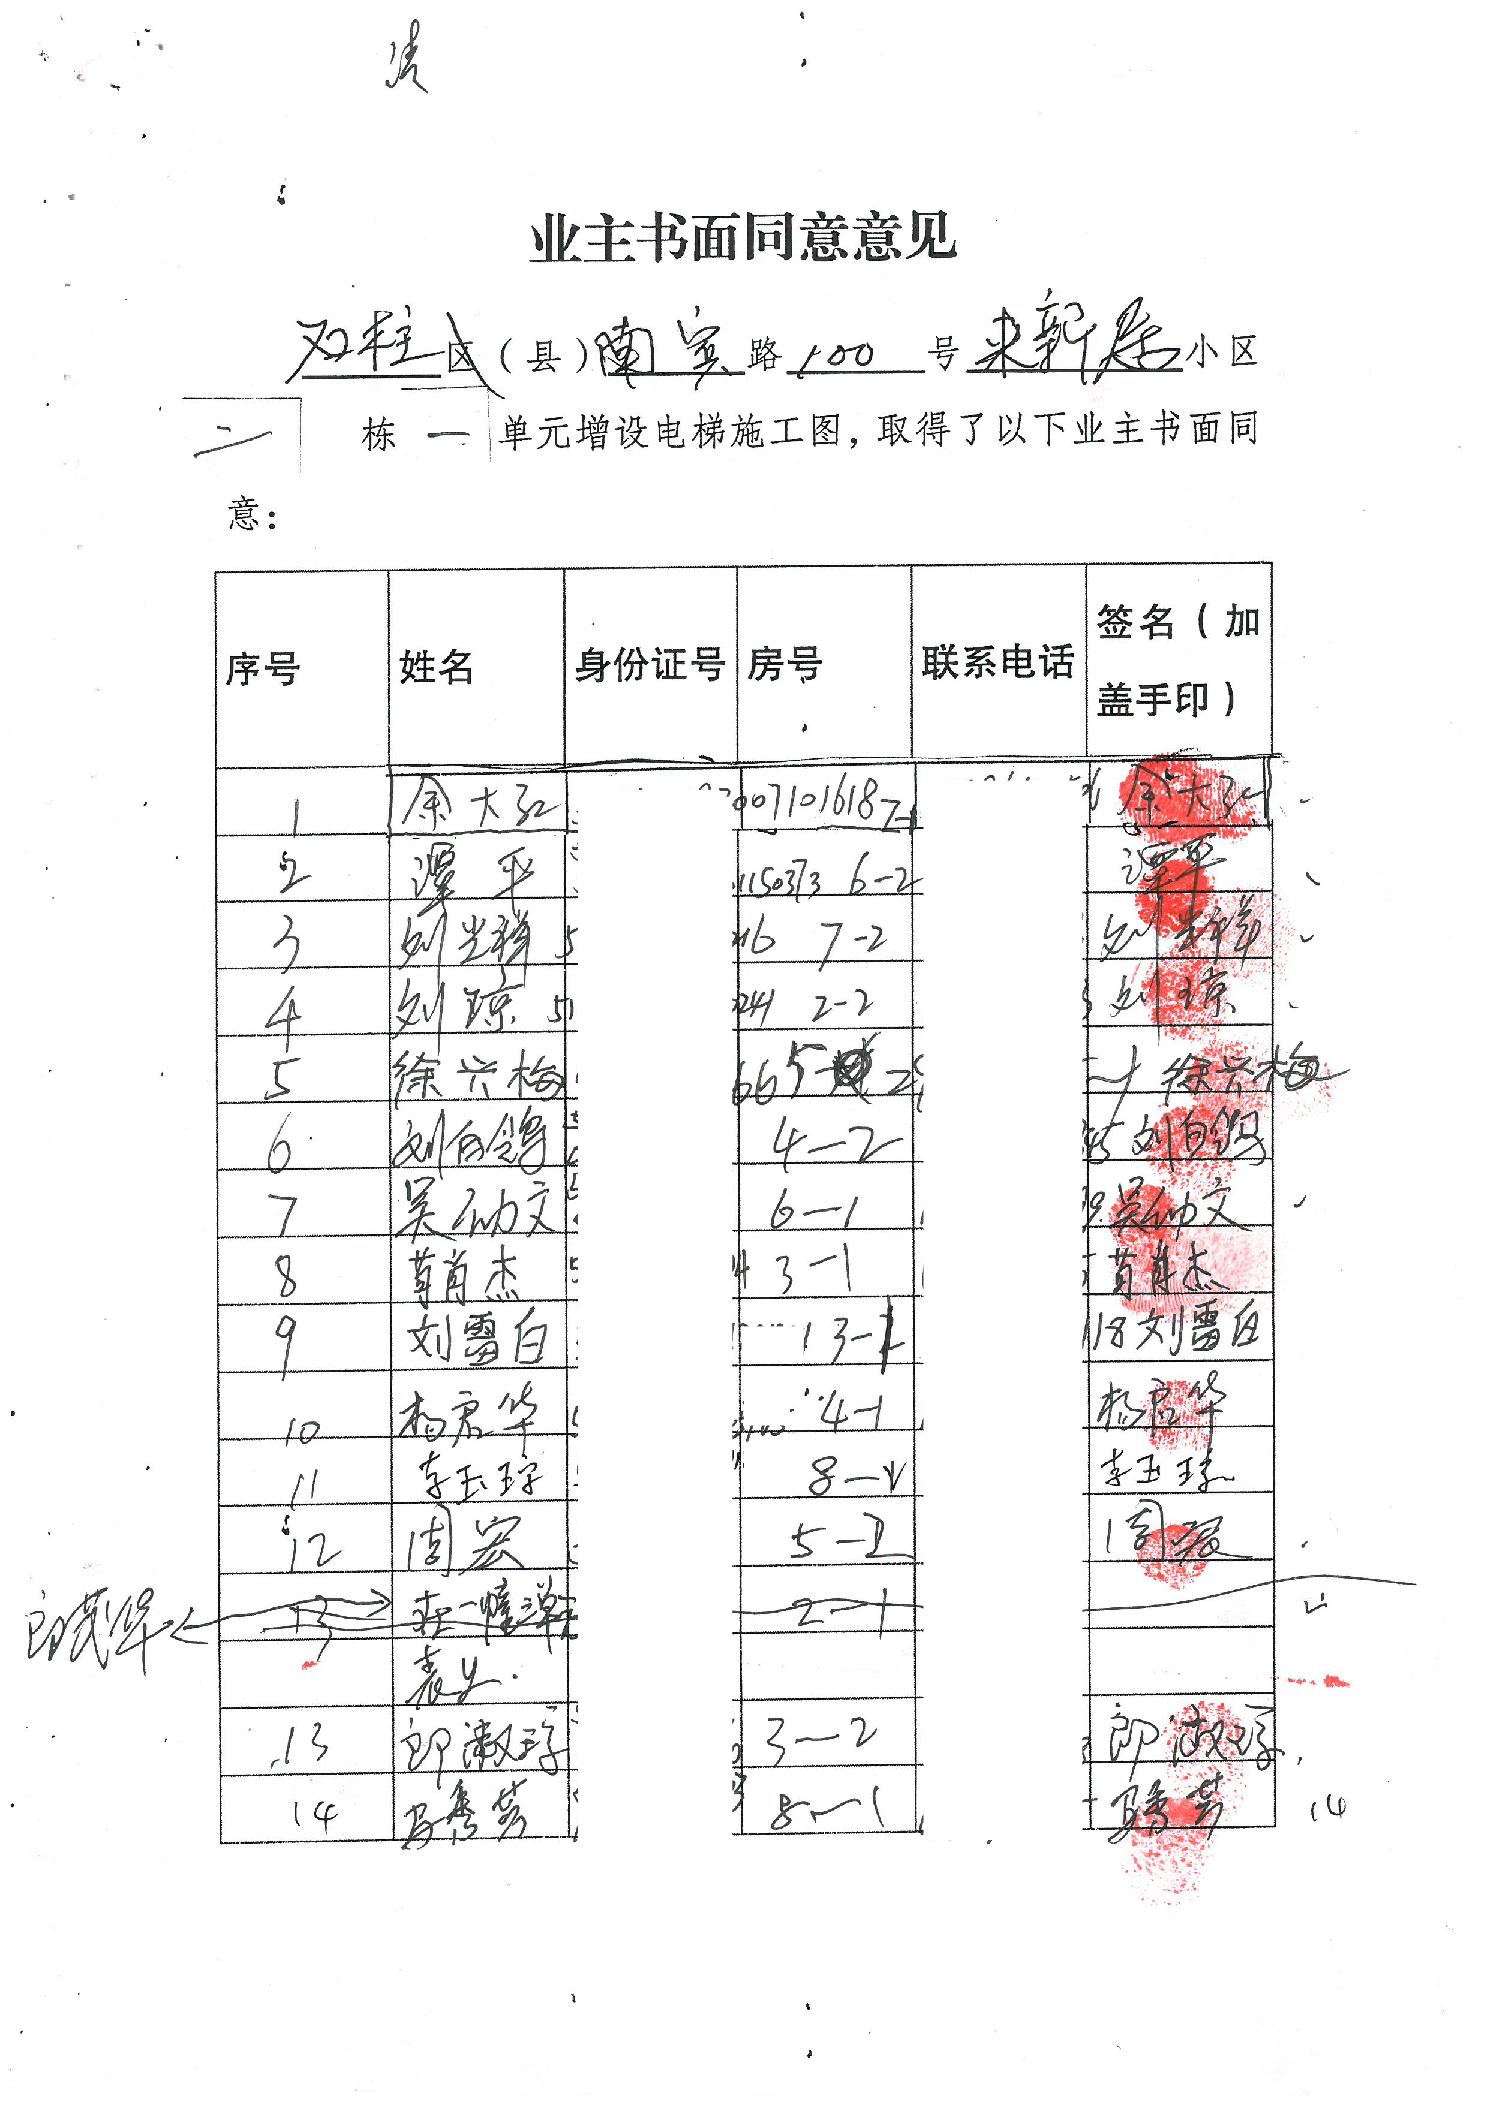 业主书面同意意见
石柱区(县)南宾路100号来新居小区
二栋一单元增设电梯施工图,取得了以下业主书面同
意:
序号 姓名 身份证号 房号 联系电话 签名(加盖手印)
1 余大红 007101618 7-1 余大红
2 谭平 1150373 6-2 谭平
3 刘光祥 5 16 7-2 刘光祥
4 刘琼 51 241 2-2 刘琼
5 徐兴梅 66 5-2 徐兴梅
6 刘白鸽 4-2 45 刘白鸽
7 吴幼文 6-1 吴幼文
8 肖杰 4 3-1 肖杰
9 刘雷白 1 3- 118 刘雷白
10 杨君华 4-1 杨君华
11 李玉 8- 李玉
12 周宏 5- 周
13 2-1
13 郎淑琼 3-2 郎淑琼
14 马秀芳 8-1 马秀芳 14